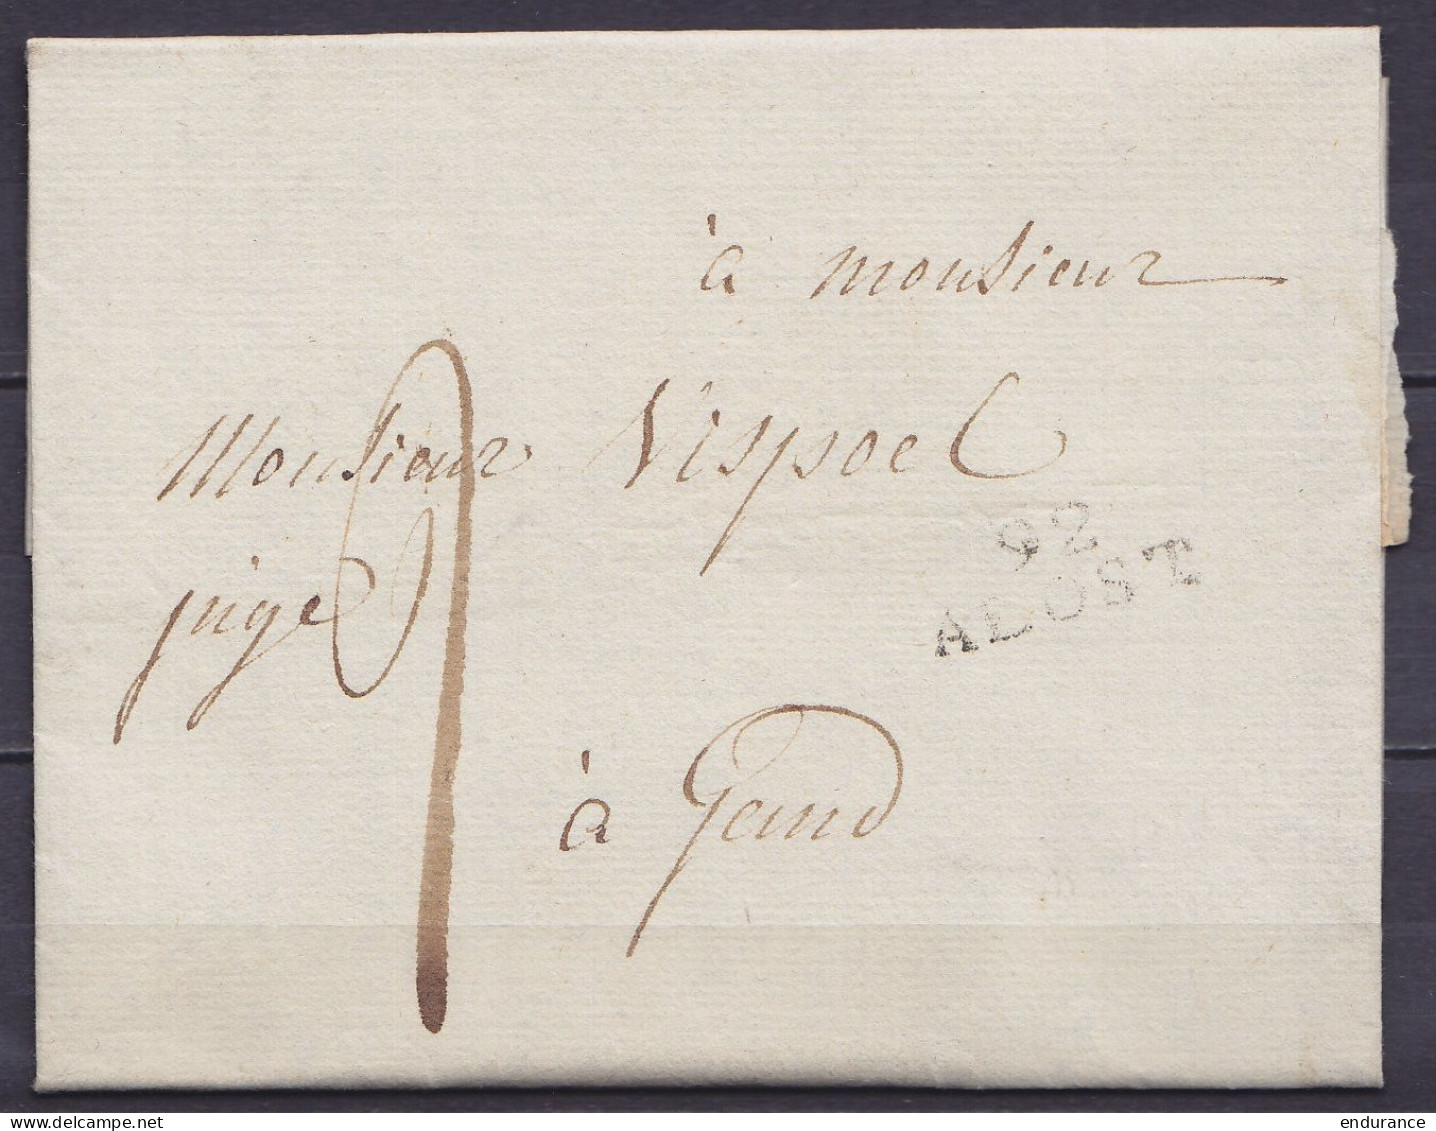 à monsieur
Monsieur Vispoel
juge
92
ALOST
à Gand
delcampe.net
endurance